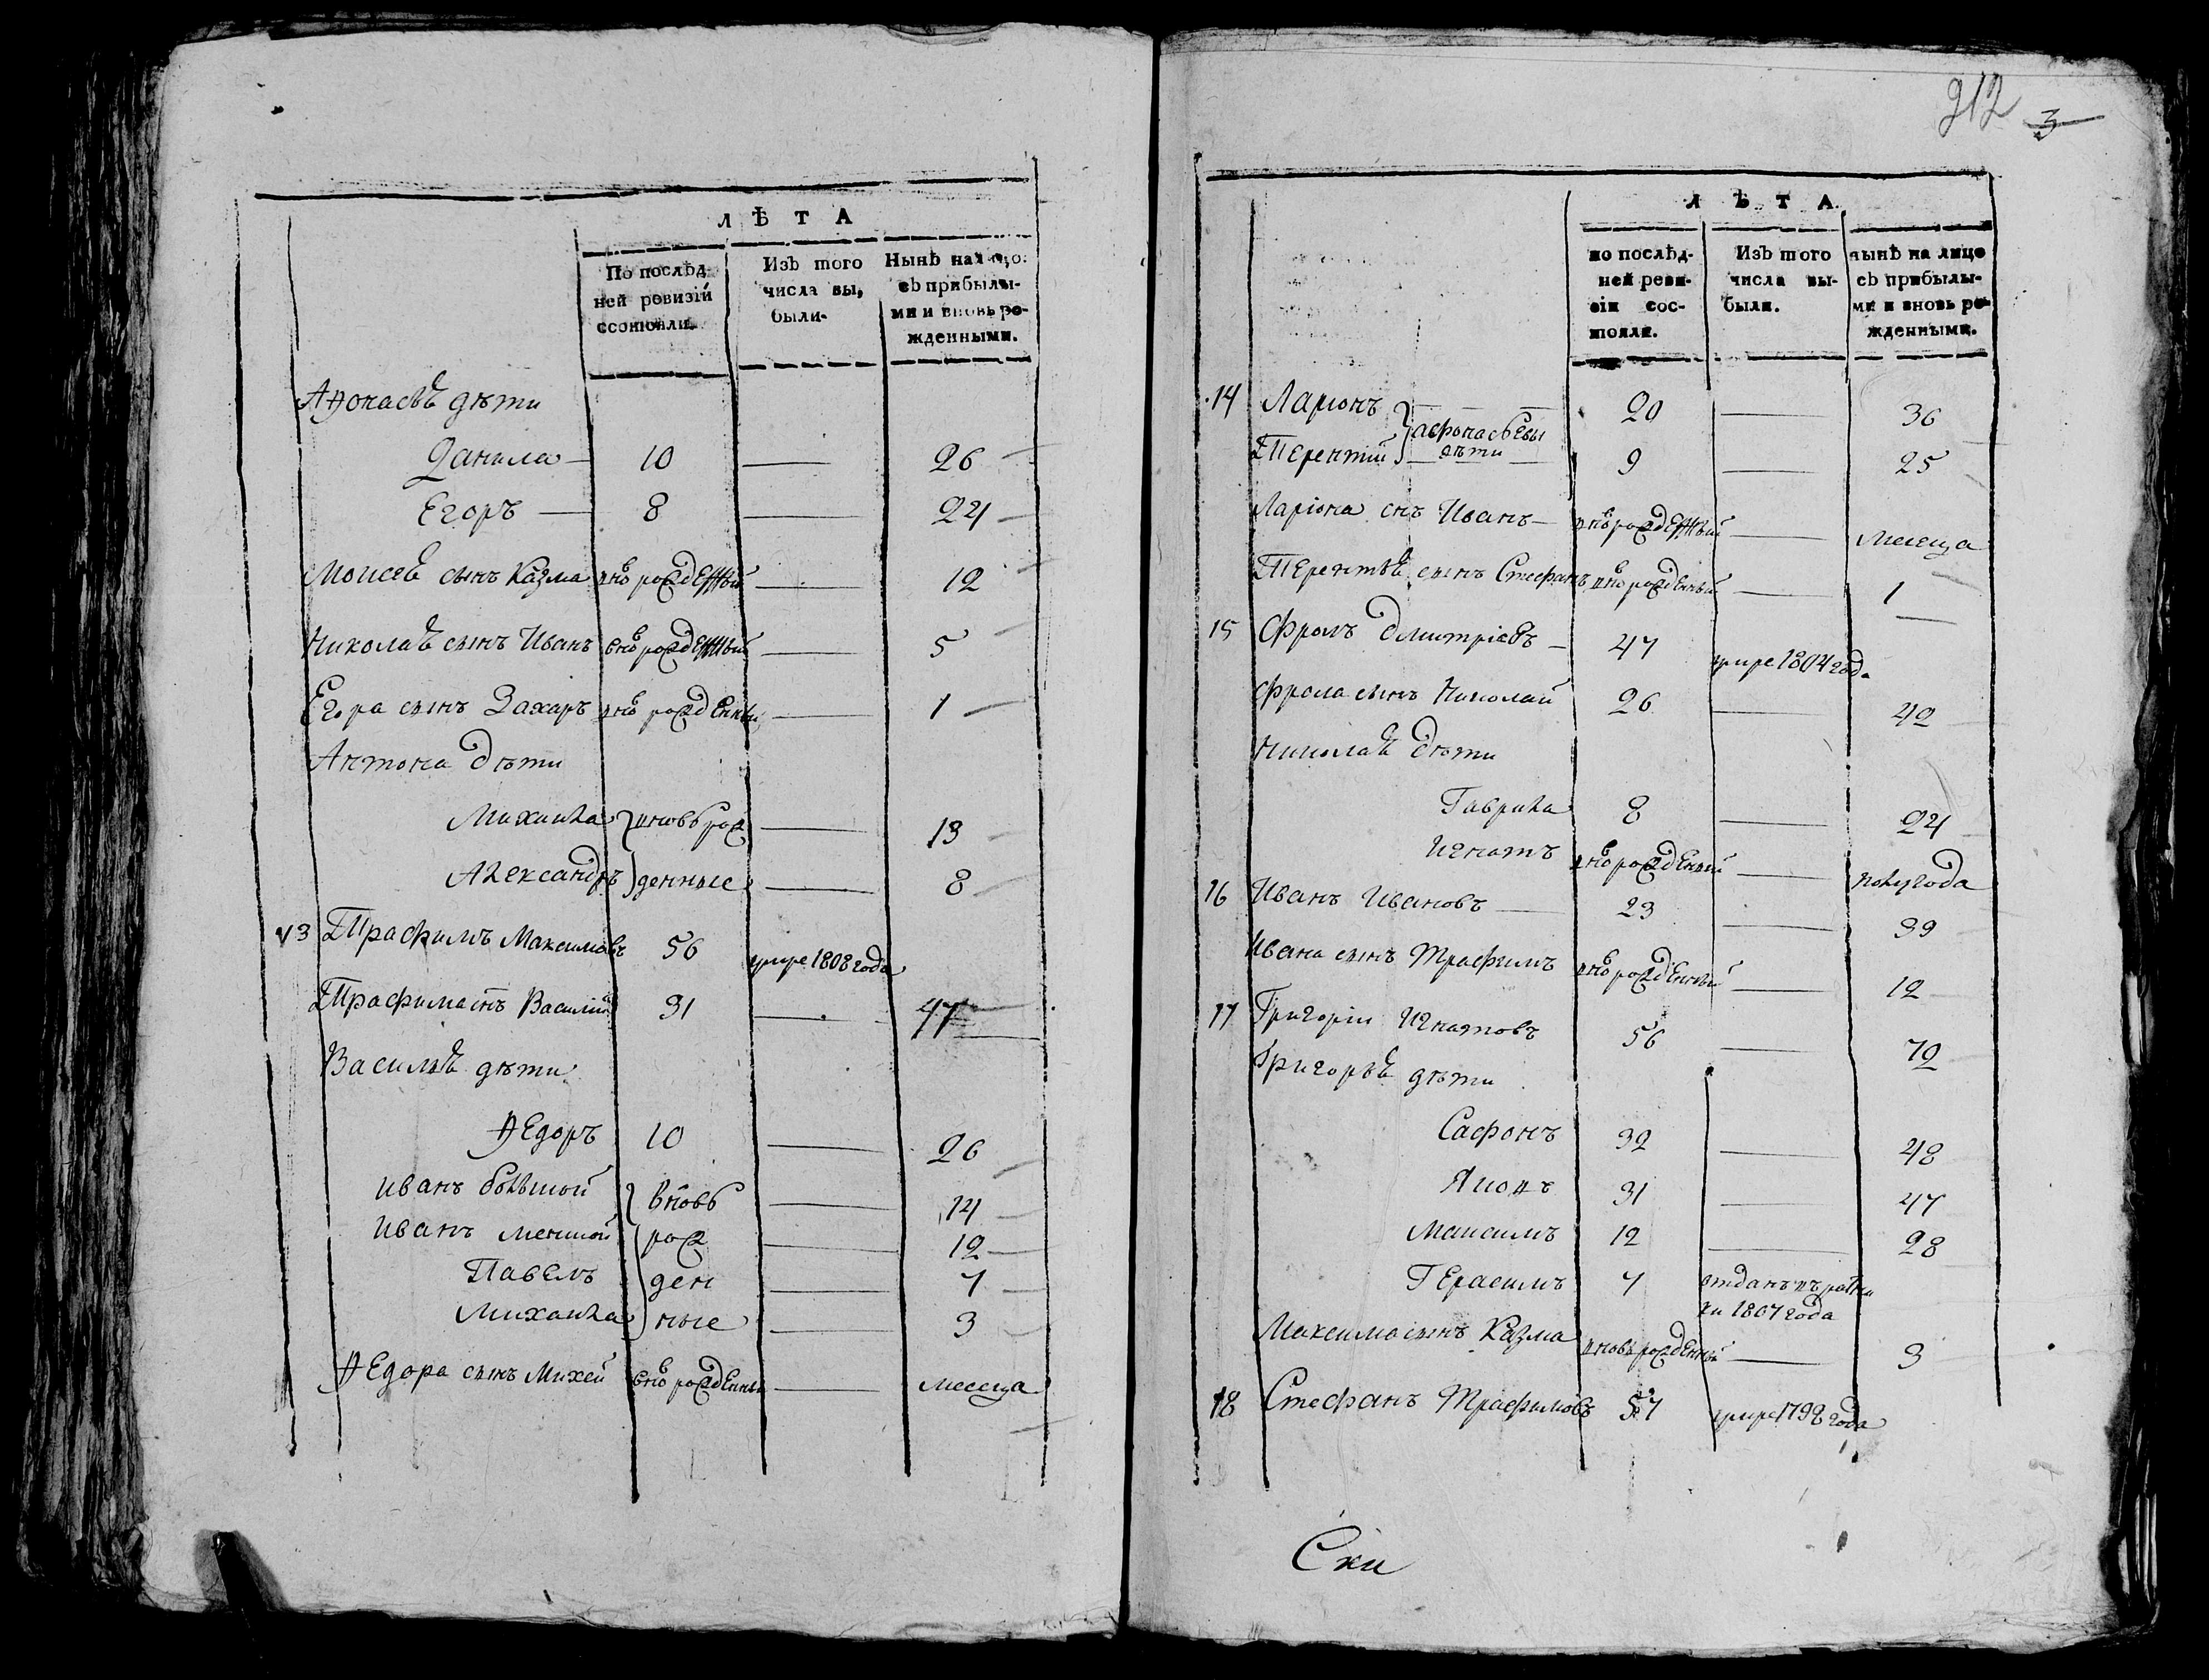 ЛѢТА
По послѣд-
ней ревизіи
состояли.
Изъ того
числа вы,
были.
Нынѣ на лицо
съ прибылы-
ми и вновь ро-
жденными.
Афонасьѣ дѣти
Данила 10 — 26
Егоръ 8 — 24
Моисеѣ сынъ Казма вновь рожденный — 12
Николаѣ сынъ Иванъ вновь рожденный — 5
Егора сынъ Захаръ вновь рожденный — 1
Антона дѣти
Михаила } вновь рож — 13
Александръ } денные — 8
13 Трафимъ Максимовъ 56 умре 1808 года
Трафима снъ Василий 31 — 47
Василья дѣти
Федоръ 10 — 26
Иванъ большой } вновь — 14
Иванъ меншой рож — 12
Павелъ ден — 7
Михаила ные — 3
Федора сынъ Михей вновь рожденный — месеца
212 3
ЛѢТА
по послѣд-
ней реви-
зіи сос-
тояли.
Изъ того
числа вы-
были.
нынѣ на лицо
съ прибылы-
ми и вновь ро-
жденными.
14 Ларионъ } афонасьевы 20 — 36
Терентий } дѣти 9 — 25
Ларіона снъ Иванъ вновь рожденный — месеца
Терентьѣ сынъ Стефанъ вновь рожденный — 1
15 Фролъ Дмитріевъ 47 умре 1804 года
Фрола сынъ Николай 26 — 42
Николаѣ дѣти
Гаврила 8 — 24
Игнатъ вновь рожденный — полугода
16 Иванъ Ивановъ 23 — 39
Ивана сынъ Трафимъ вновь рожденный — 12
17 Григорій Игнатовъ 56 — 72
Григорьѣ дѣти
Сафонъ 32 — 48
31 — 47
Максимъ 12 — 28
Герасимъ 7 отданъ въ ратни
ки 1807 года
Максима сынъ Казма вновь рожденный — 3
18 Стефанъ Трафимовъ 57 умре 1798 года
Ски